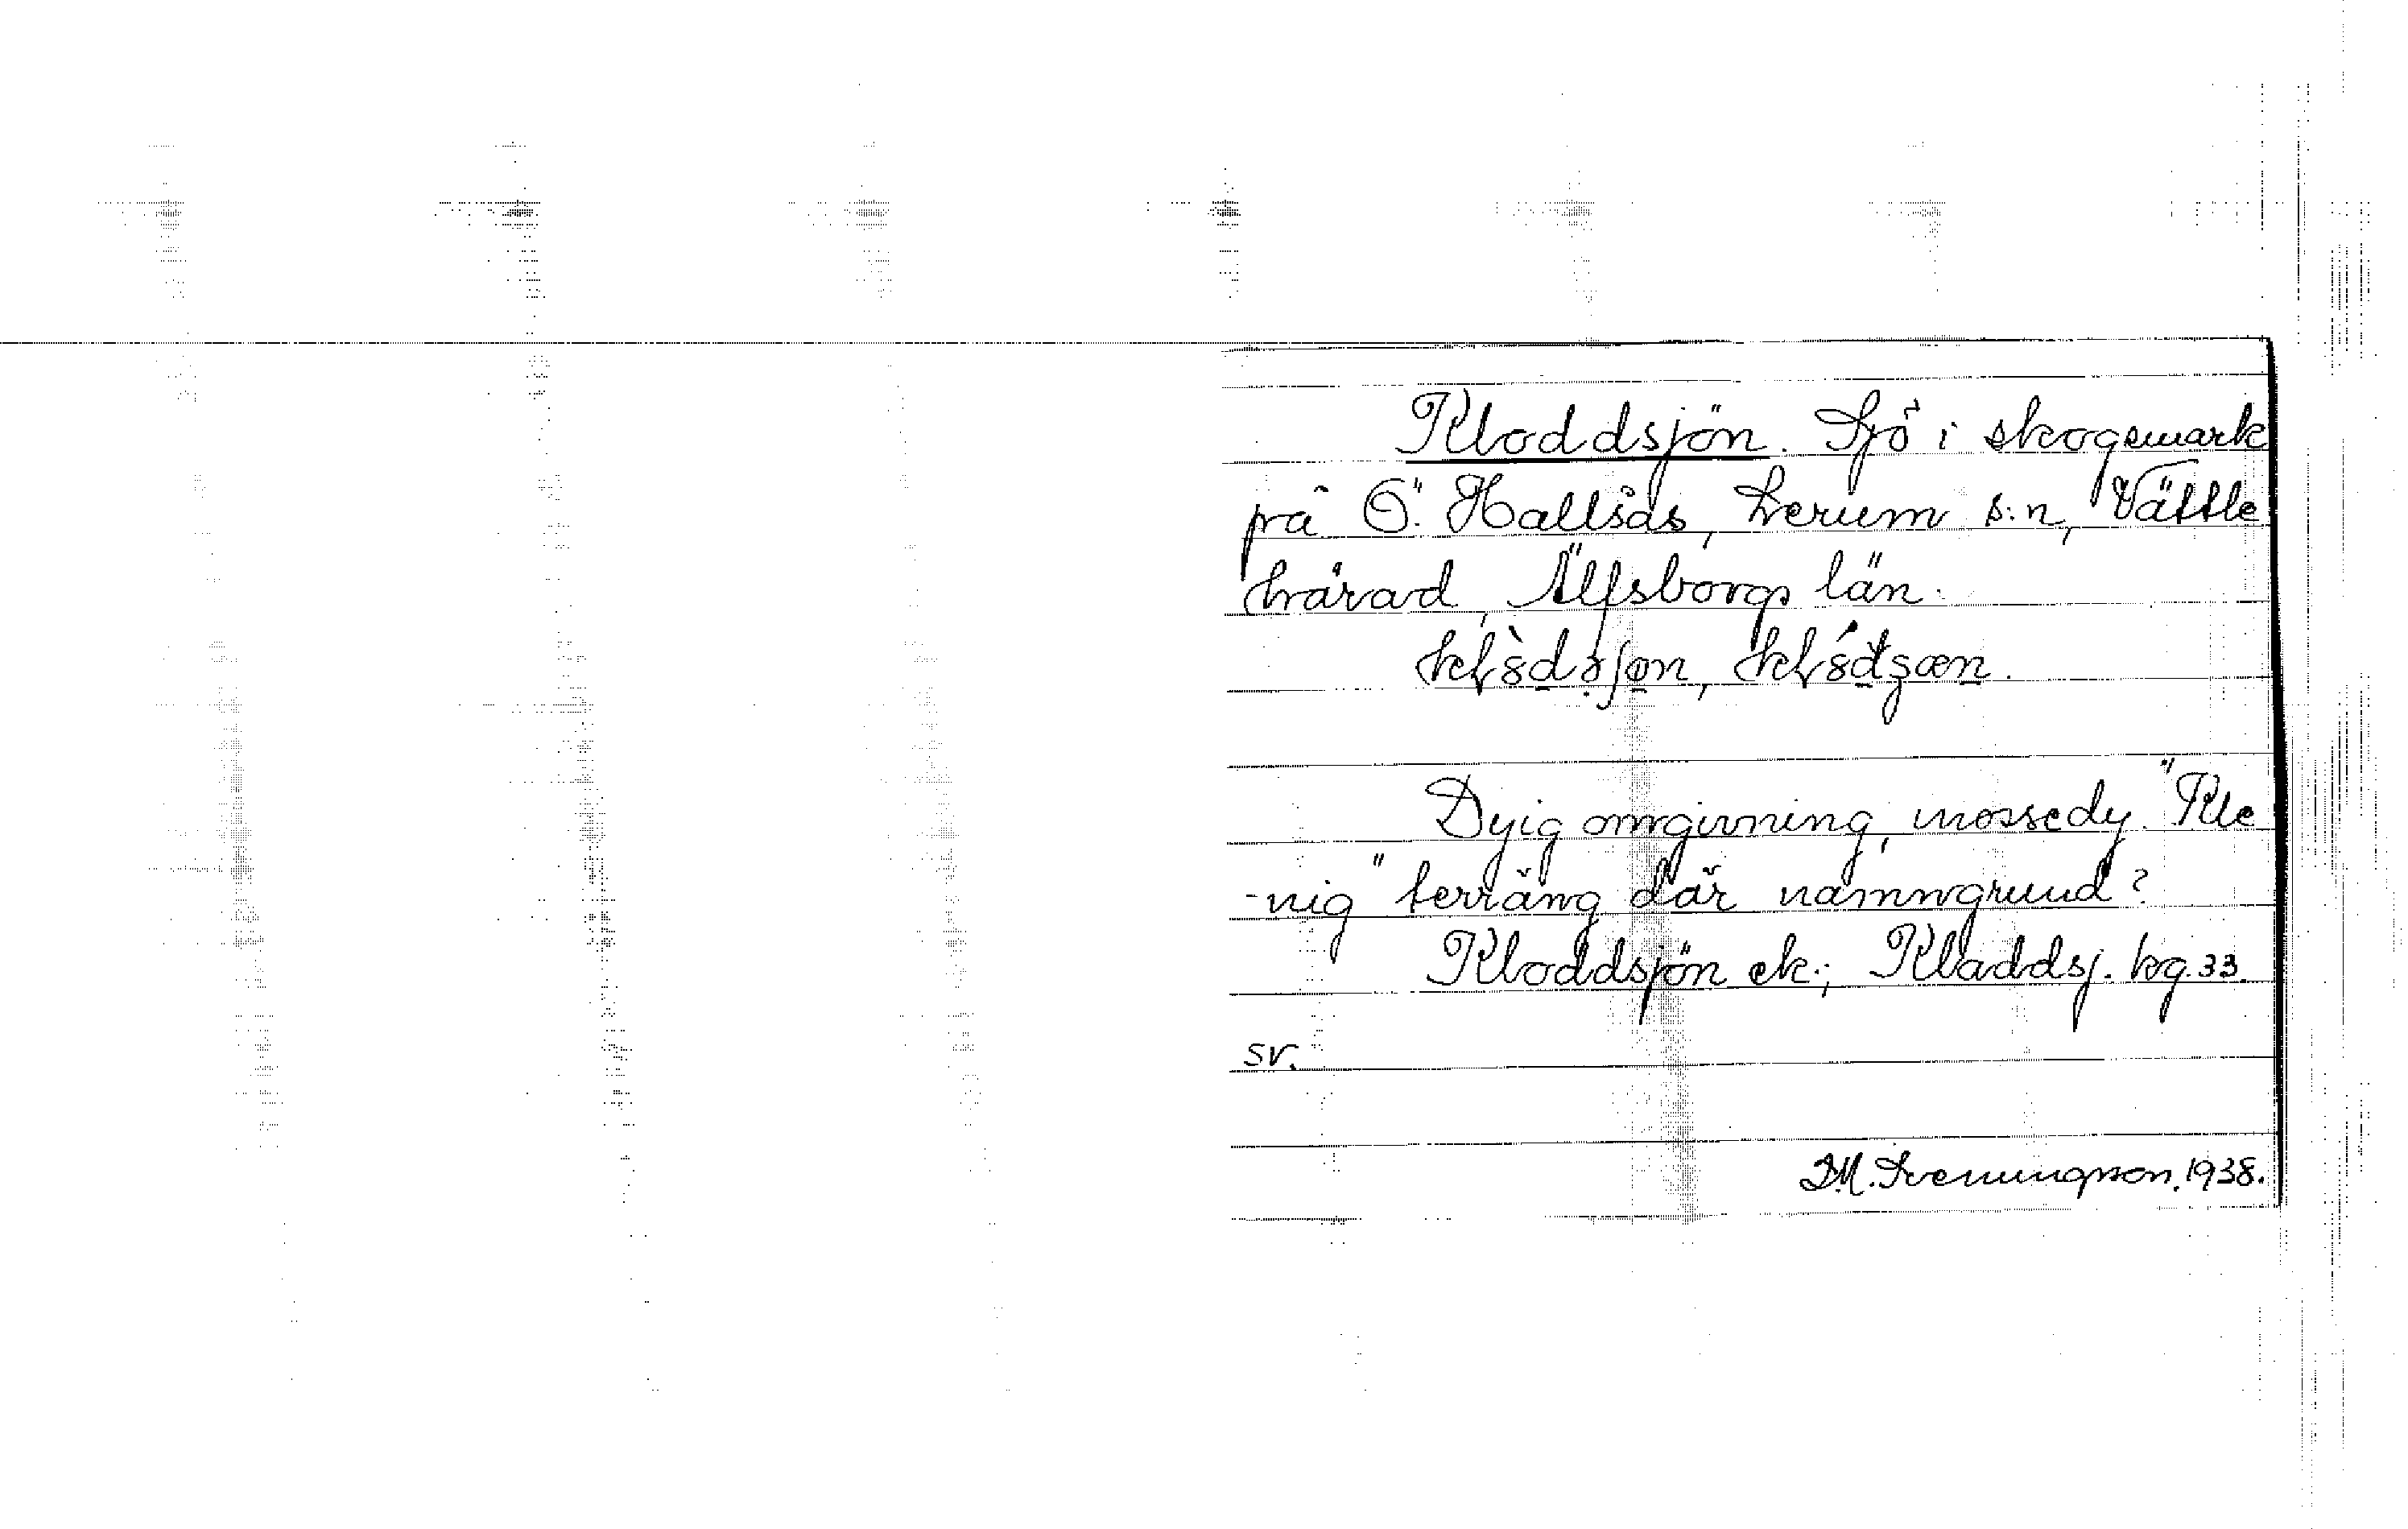 Kloddsjön. Sjö i skogsmark
på Ö. Hallsås, Lerum s:n, Vättle
härad, Älfsborgs län.
Dyig omgivning, mossedy. "Kle
-nig" terräng där namngrund?
Kloddsjön ek.; Kladdsj. kg. 33.
sv.
D.M. Svenungsson. 1938.